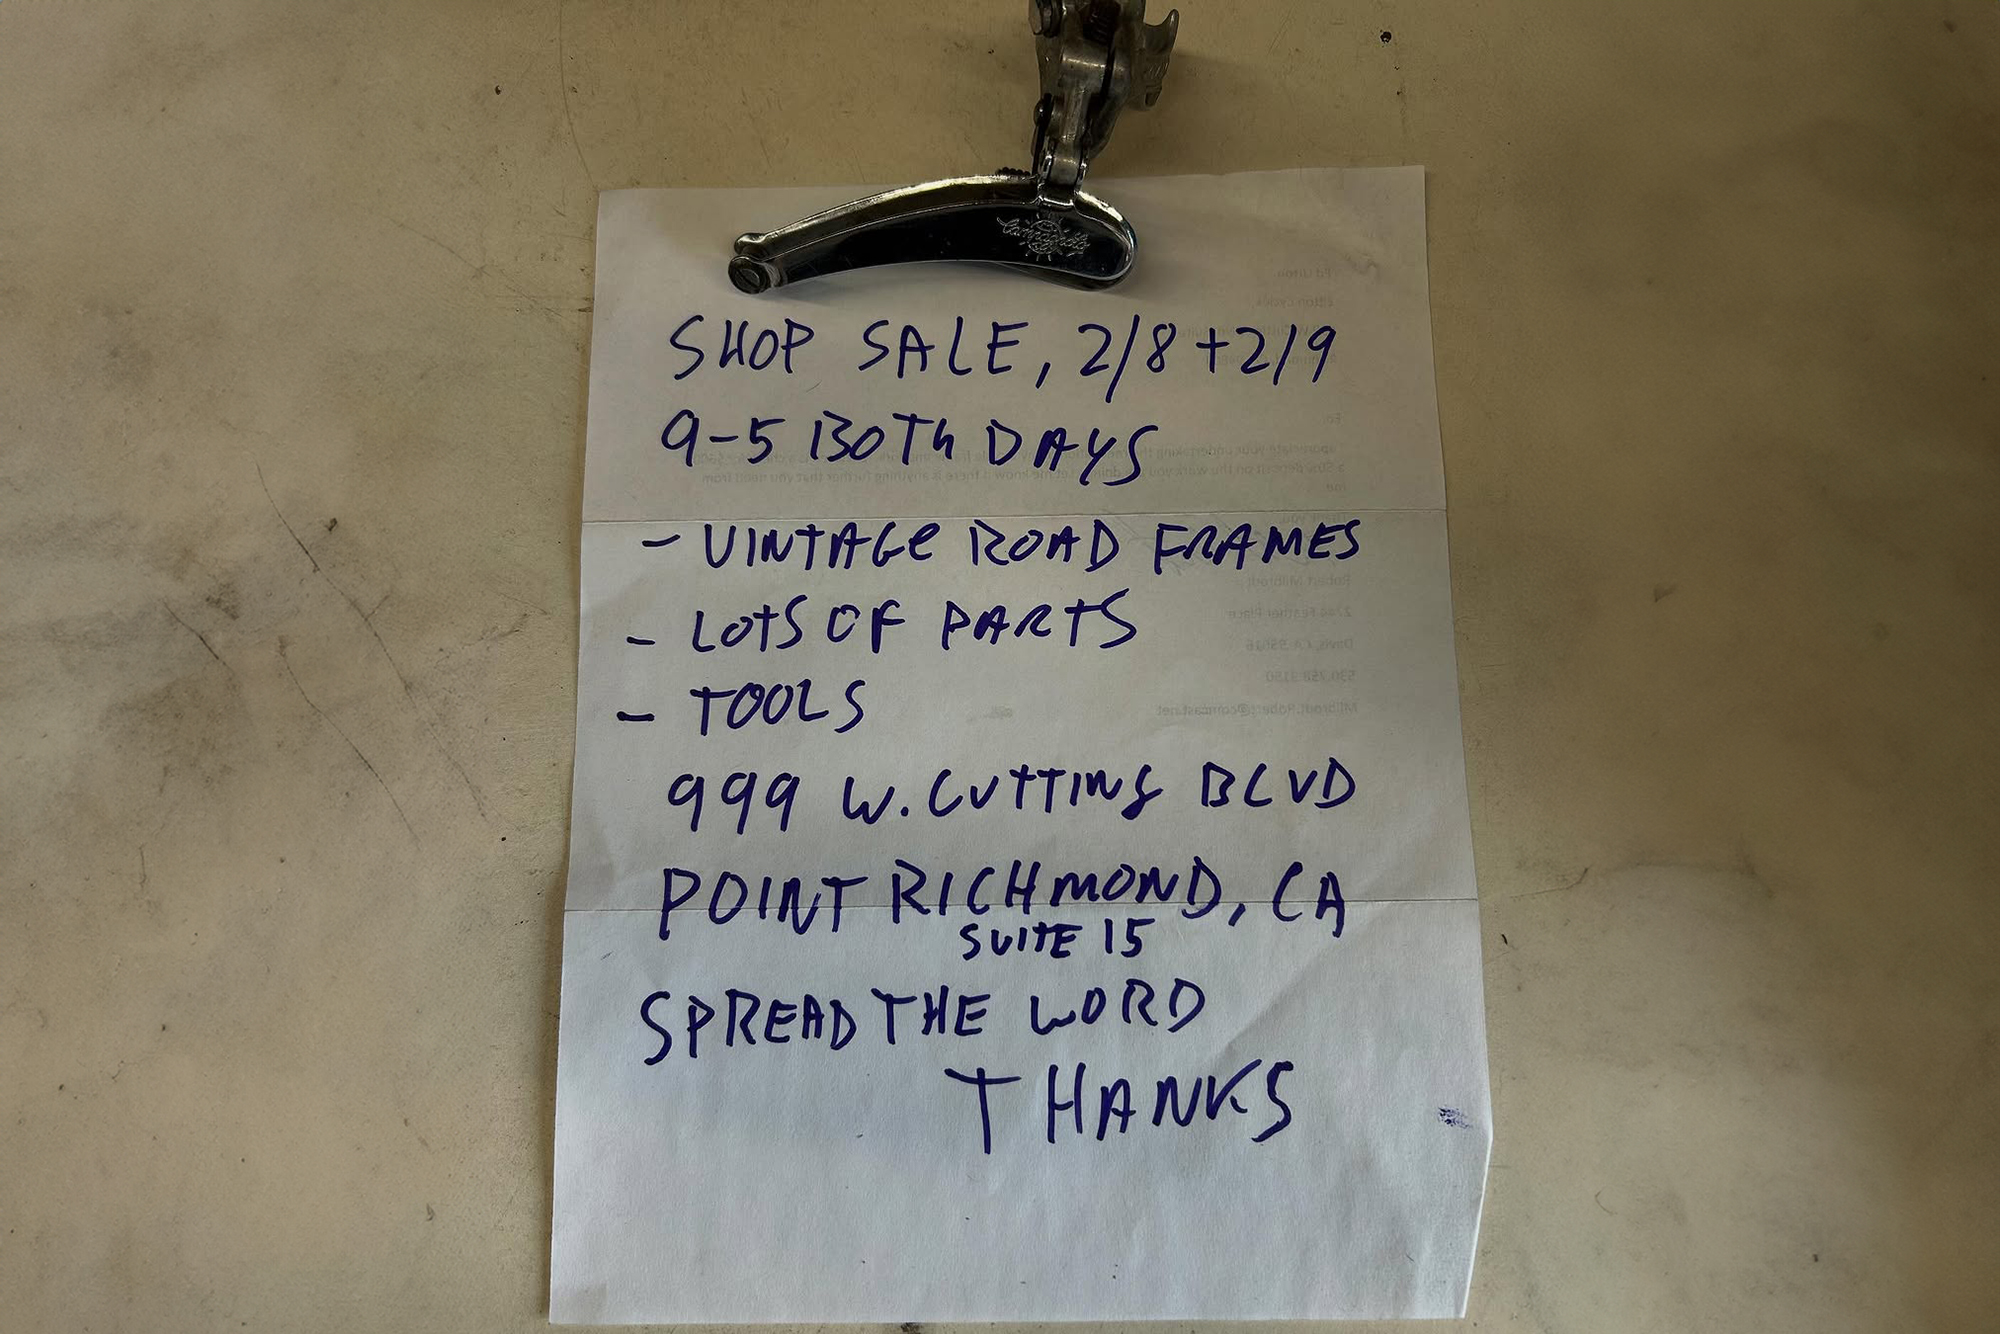 Campagnolo
SHOP SALE, 2/8 + 2/9
9-5 BOTh DAYS
- VINTAGe ROAD FRAMES
- LOTS OF PARTS
- TOOLS
999 W. CUTTING BLVD
POINT RICHMOND, CA
SUITE 15
SPREAD THE WORD
THANKS